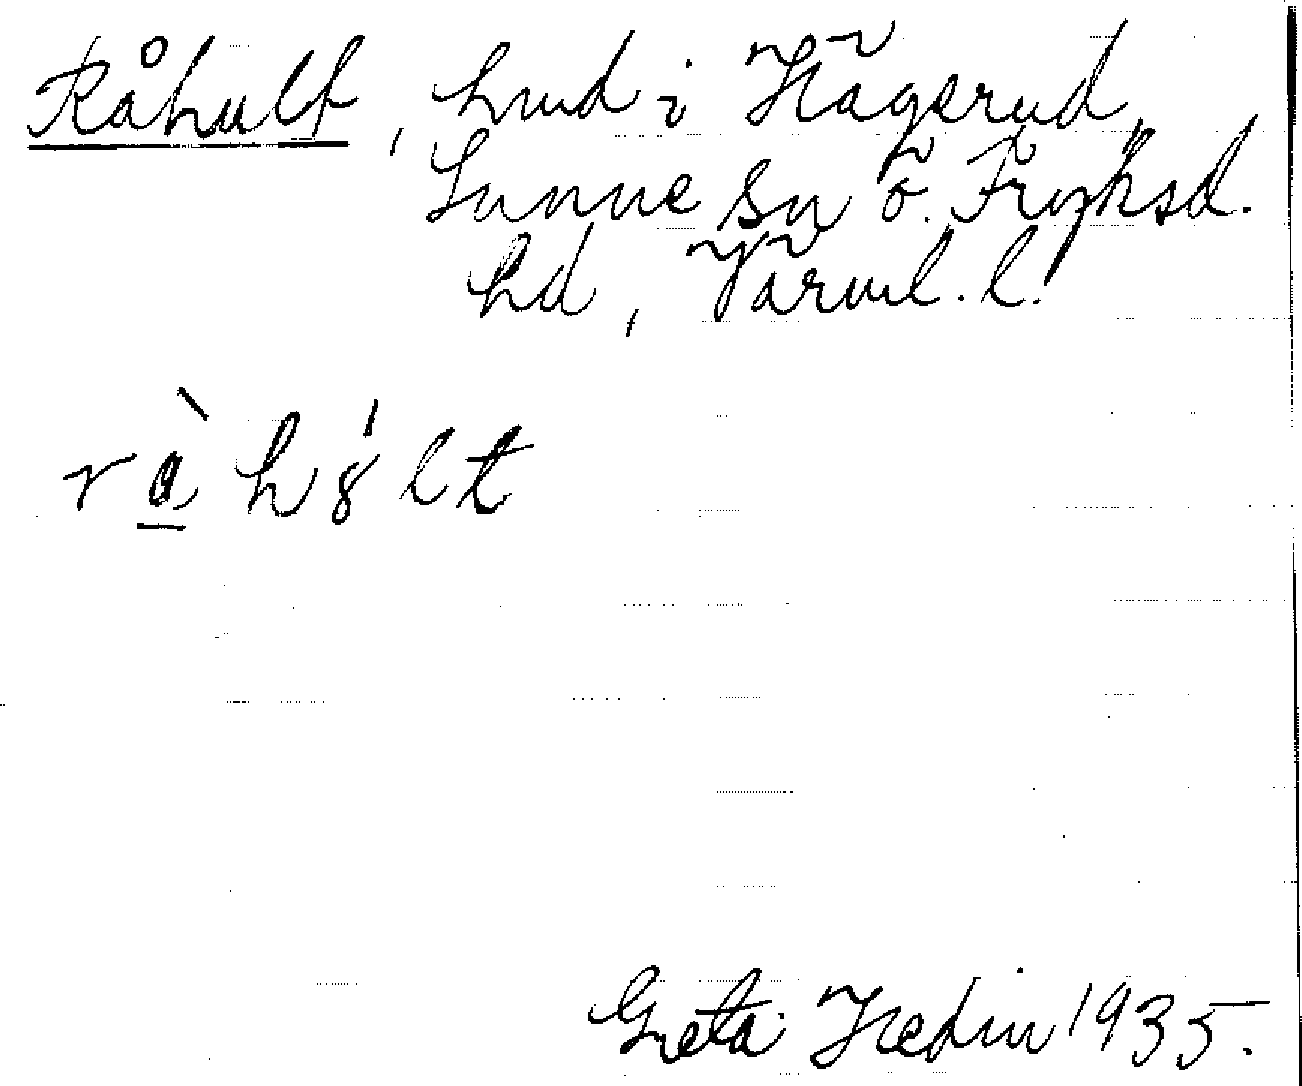 Råhult, hmd i Hägerud,
Sunne sn Ö. Fryksd.
hd, Värml. l.
rà̱ h8́lt
Greta Hedin 1935.